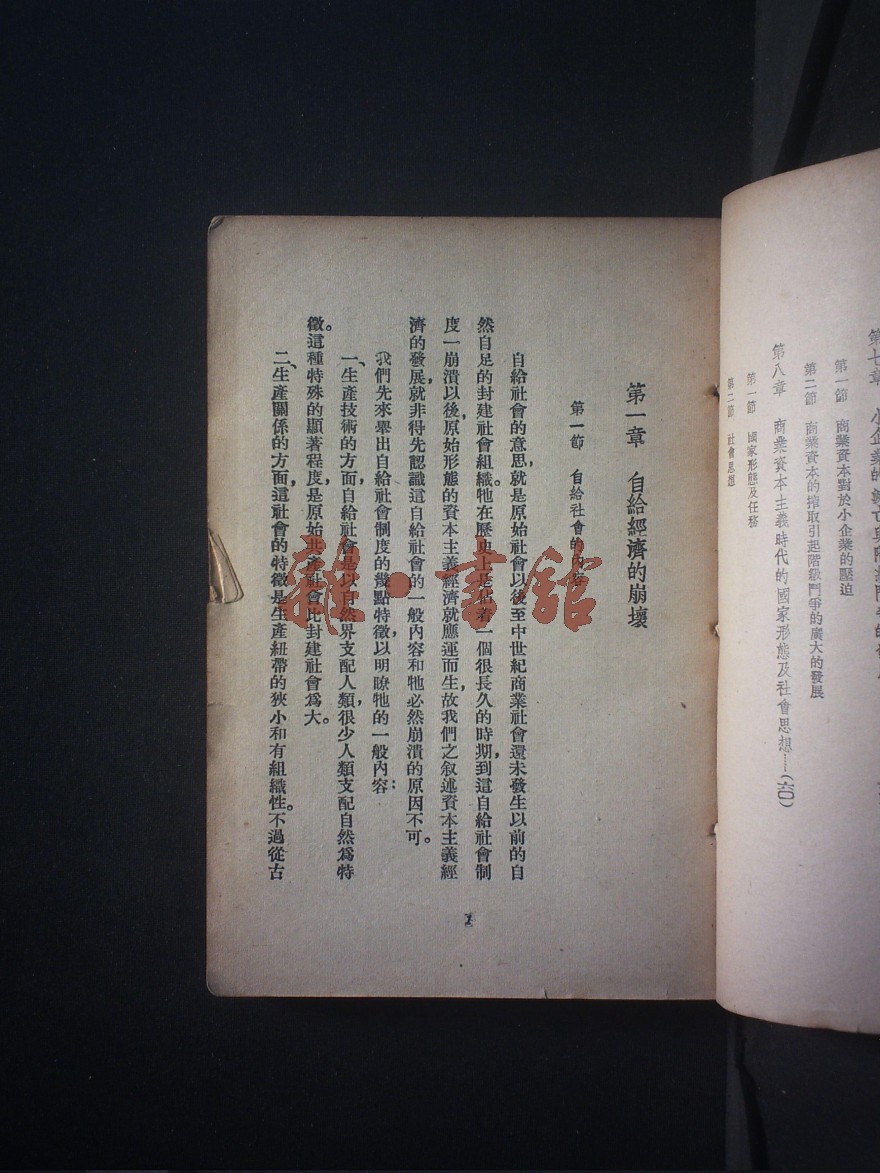 第七章　小企業的
第一節　商業資本對於小企業的壓迫
第二節　商業資本的搾取引起階級鬥爭的廣大的發展
第八章　商業資本主義時代的國家形態及社會思想……(六〇)
第一節　國家形態及任務
第二節　社會思想
第一章　自給經濟的崩壞
第一節　自給社會的內容
自給社會的意思，就是原始社會以後至中世紀商業社會還未發生以前的自
然自足的封建社會組織。牠在歷史上是佔着一個很長久的時期，到這自給社會制
度一崩潰以後，原始形態的資本主義經濟就應運而生，故我們之叙述資本主義經
濟的發展，就非得先認識這自給社會的一般內容和牠必然崩潰的原因不可。
我們先來舉出自給社會制度的幾點特徵，以明瞭牠的一般內容：
一、生產技術的方面，自給社會是以自然界支配人類，很少人類支配自然爲特
徵。這種特殊的顯著程度，是原始共產社會比封建社會爲大。
二、生產關係的方面，這社會的特徵是生產紐帶的狹小和有組織性。不過從古
1
雜·書館